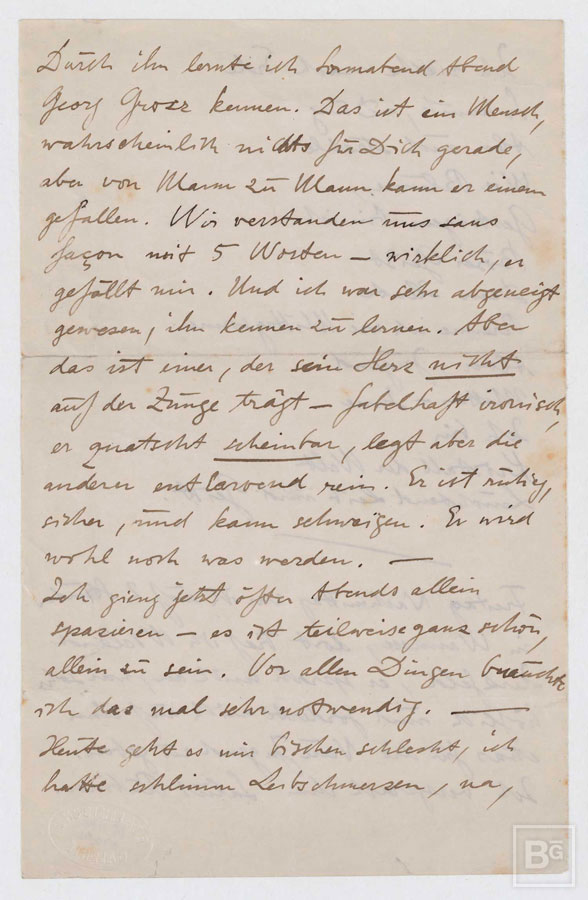 Durch ihn lernte ich Sonnabend Abend
Georg Grosz kennen. Das ist ein Mensch,
wahrscheinlich nichts für Dich gerade,
aber von Mann zu Mann kann er einem
gefallen. Wir verstanden uns sans
façon mit 5 Worten – wirklich, er
gefällt mir. Und ich war sehr abgeneigt
gewesen, ihn kennen zu lernen. Aber
das ist einer, der sein Herz nicht
auf der Zunge trägt – fabelhaft ironisch,
er quatscht scheinbar, legt aber die
anderen entlarvend rein. Er ist ruhig,
sicher, und kann schweigen. Er wird
wohl noch was werden. —
Ich gieng jetzt öfter Abends allein
spazieren – es ist teilweise ganz schön,
allein zu sein. Vor allen Dingen brauchte
ich das mal sehr notwendig. —
Heute geht es mir bischen schlecht, ich
hatte schlimm Leibschmerzen, na,
BG